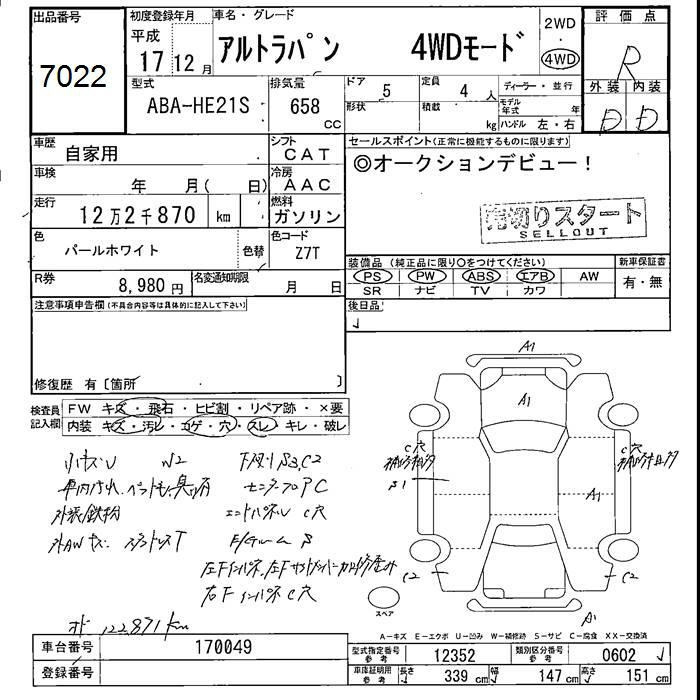 出品番号
7022
初度登録年月
平成
17 12 月
車名・グレード
アルトラパン 4WDモード
2WD
4WD
評価点
R
外装 内装
D D
型式
ABA-HE21S
排気量
658 cc
ドア 5
形状
定員 4 人
積載 kg
ディーラー・並行
モデル年式 年
ハンドル 左・右
車歴
自家用
シフト
CAT
車検
年 月( 日)
冷房
AAC
走行
12万2千870 km
燃料
ガソリン
色
パールホワイト
色替
色コード
Z7T
R券
8,980 円
名変通知期限
月 日
セールスポイント(正常に機能するものに限ります)
◎オークションデビュー!
売切りスタート
SELLOUT
装備品(純正品に限り○をつけてください)
新車保証書
PS PW ABS エアB AW
SR ナビ TV カワ
有・無
後日品
注意事項申告欄(不具合内容等は具体的に記入して下さい)
修復歴 有〔箇所 〕
検査員記入欄
FW キズ・飛石・ヒビ割・リペア跡・×要
内装 キズ・汚レ・コゲ・穴・スレ・キレ・破レ
小キズU W2
下廻りS3,C2
C穴
外装鉄粉
オド 122871km
A1
A1
A1
C穴
S1
C穴
C2
C2
A1
スペア
A-キズ E-エクボ U-凹み W-補修跡 S-サビ C-腐食 XX-交換済
車台番号
170049
登録番号
型式指定番号参考
12352
類別区分番号参考
0602
車庫証明用参考
長さ 339 cm
幅 147 cm
高さ 151 cm